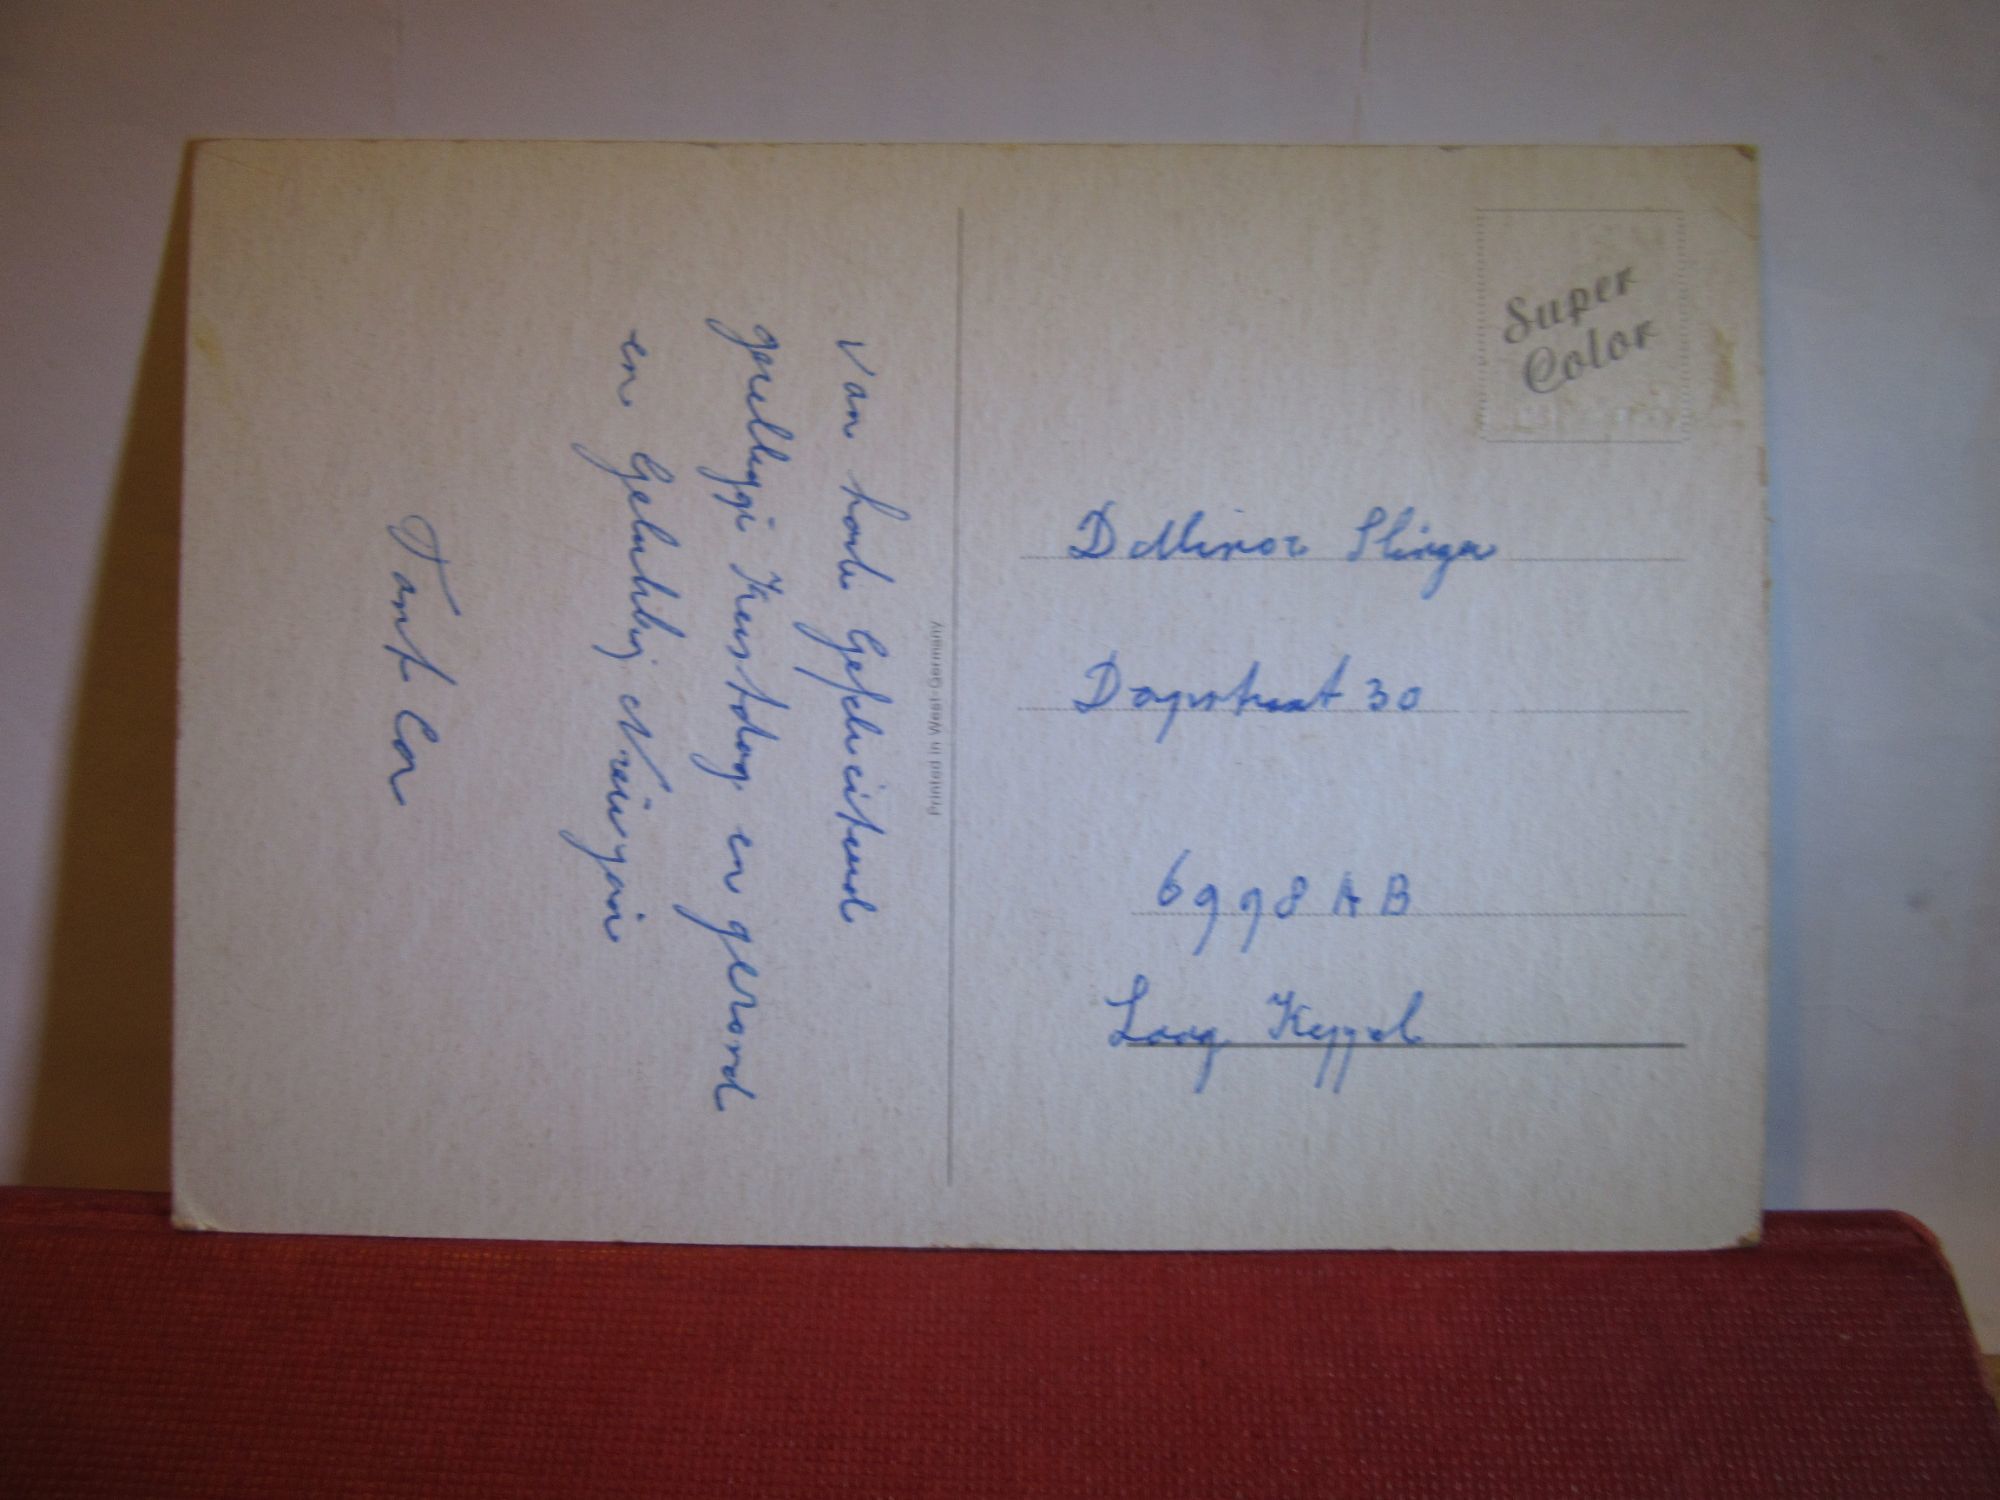 Van harte Gefeliciteerd
gezellige Kerstdag en gezond
en Gelukkig Nieuwjaar
Tante Cor
Printed in West-Germany
Super
Color
D Minor
Dorpstraat 30
6998 AB
Laag Keppel